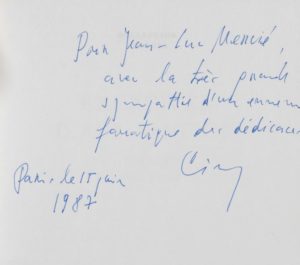 Pour Jean-Luc Mercié,
avec la très grande
sympathie d'un ennemi
fanatique des dédicaces
Paris - le 15 juin
1987